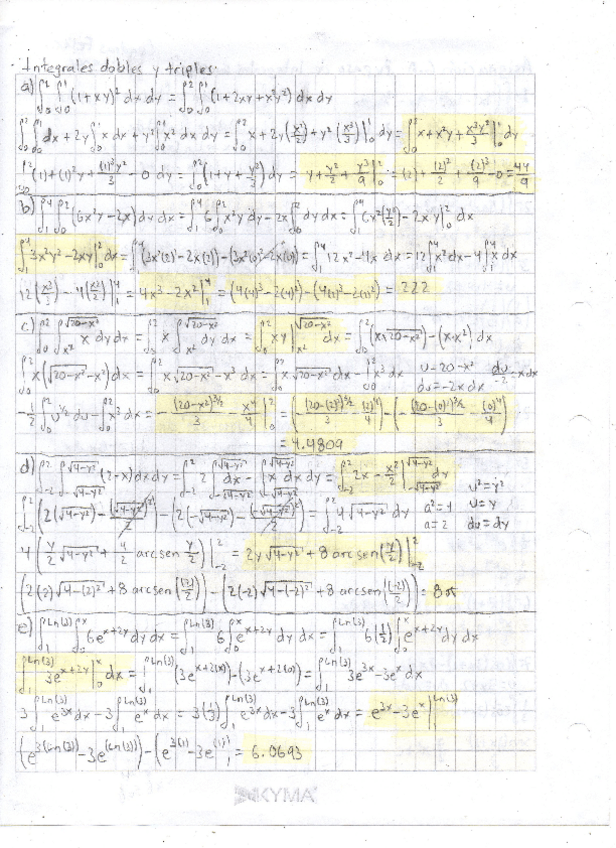 Integrales dobles y triples.
a) ∫₀² ∫₀¹ (1+xy)² dx dy = ∫₀² ∫₀¹ (1+2xy+x²y²) dx dy
∫₀² ∫₀¹ dx + 2y ∫₀¹ x dx + y² ∫₀¹ x² dx dy = ∫₀² x+2y(x²/2)+y²(x³/3)|₀¹ dy = ∫₀² x+x²y+x³y²/3|₀¹ dy
∫₀² (1)+(1)²y+(1)³y²/3 - 0 dy = ∫₀² (1+y+y²/3) dy = y+y²/2+y³/9|₀² = (2)+(2)²/2+(2)³/9-0 = 44/9
b) ∫₁⁴ ∫₀² (6x²y-2x) dy dx = ∫₁⁴ 6∫₀² x²y dy - 2x∫₀² dy dx = ∫₁⁴ 6x²(y²/2)-2xy|₀² dx
∫₁⁴ 3x²y²-2xy|₀² dx = ∫₁⁴ (3x²(2)²-2x(2))-(3x²(0)²-2x(0)) = ∫₁⁴ 12x²-4x dx = 12∫₁⁴ x² dx - 4∫₁⁴ x dx
12(x³/3)-4(x²/2)|₁⁴ = 4x³-2x²|₁⁴ = (4(4)³-2(4)²)-(4(1)³-2(1)²) = 222
c) ∫₀² ∫_{x²}^{√20-x²} x dy dx = ∫₀² x ∫_{x²}^{√20-x²} dy dx = ∫₀² xy|_{x²}^{√20-x²} dx = ∫₀² (x√20-x²)-(x·x²) dx
∫₀² x(√20-x² - x²) dx = ∫₀² x√20-x² - x³ dx = ∫₀² x√20-x² dx - ∫₀² x³ dx u=20-x² du/-2 = x dx
du=-2x dx
-1/2 ∫₀² u^{1/2} du - ∫₀² x³ dx = -(20-x²)^{3/2}/3 - x⁴/4|₀² = (-(20-(2)²)^{3/2}/3 - (2)⁴/4)-(-(20-(0)²)^{3/2}/3 - (0)⁴/4)
= 4.4809
d) ∫₋₂² ∫_{-√4-y²}^{√4-y²} (2-x) dx dy = ∫₋₂² 2∫_{-√4-y²}^{√4-y²} dx - ∫_{-√4-y²}^{√4-y²} x dx dy = ∫₋₂² 2x - x²/2|_{-√4-y²}^{√4-y²} dy
u²=y²
∫₋₂² (2(√4-y²)-(√4-y²)²/2)-(2(-√4-y²)-(-√4-y²)²/2) = ∫₋₂² 4√4-y² dy a²=4 u=y
a=2 du=dy
4(y/2 √4-y² + 4/2 arcsen y/2)|₋₂² = 2y√4-y² + 8 arcsen(y/2)|₋₂²
(2(2)√4-(2)² + 8 arcsen((2)/2))-(2(-2)√4-(-2)² + 8 arcsen((-2)/2)) = 8π
e) ∫₁^{Ln(3)} ∫₀ˣ 6e^{x+2y} dy dx = ∫₁^{Ln(3)} 6∫₀ˣ e^{x+2y} dy dx = ∫₁^{Ln(3)} 6(1/2)∫₀ˣ e^{x+2y} dy dx
∫₁^{Ln(3)} 3e^{x+2y}|₀ˣ dx = ∫₁^{Ln(3)} (3e^{x+2(x)})-(3e^{x+2(0)}) = ∫₁^{Ln(3)} 3e^{3x}-3eˣ dx
3∫₁^{Ln(3)} e^{3x} dx - 3∫₁^{Ln(3)} eˣ dx = 3(1/3)∫₁^{Ln(3)} e^{3x} dx - 3∫₁^{Ln(3)} eˣ dx = e^{3x}-3eˣ|₁^{Ln(3)}
(e^{3(Ln(3))}-3e^{(Ln(3))})-(e^{3(1)}-3e^{(1)}) = 6.0693
KYMA